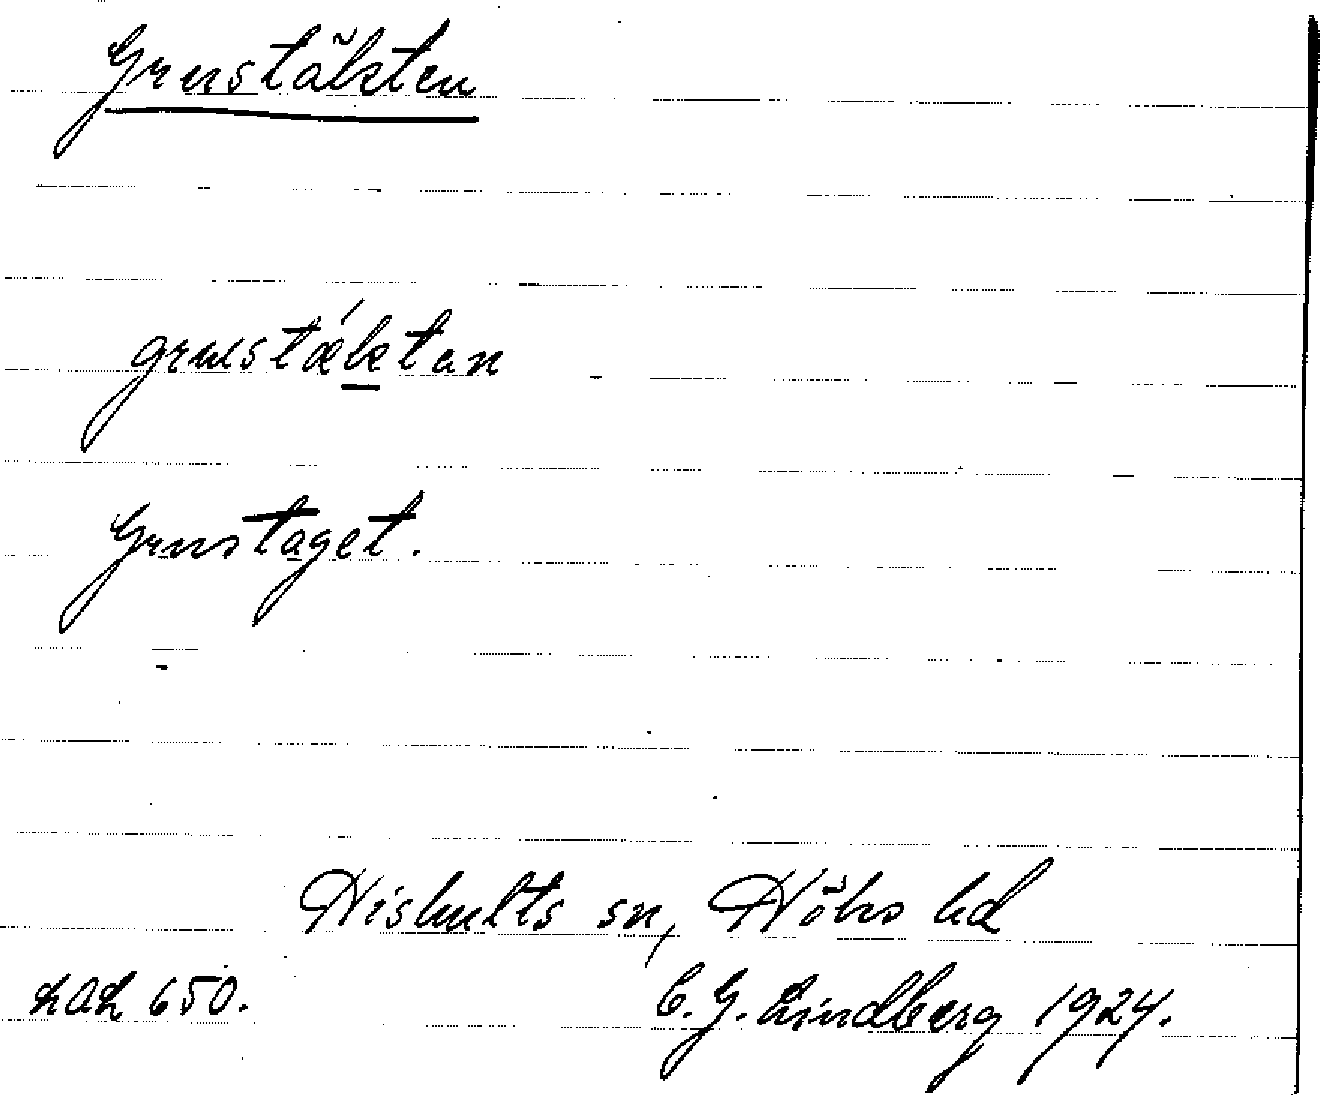 Grustäkten
grustǽktan
Grustaget.
Hishults sn, Höks hd
LAL 650.
C. G. Lindberg 1924.